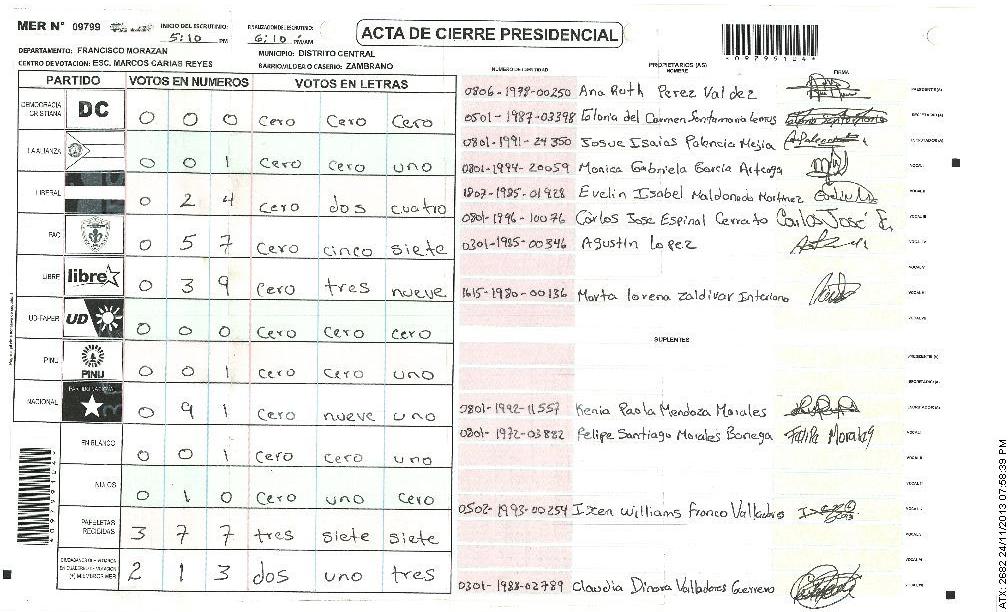 MER N° 09799
INICIO DEL ESCRUTINIO: 5:10 PM
FINALIZACION DEL ESCRUTINIO: 6:10 PM/AM
ACTA DE CIERRE PRESIDENCIAL
*09799104*
DEPARTAMENTO: FRANCISCO MORAZAN
MUNICIPIO: DISTRITO CENTRAL
CENTRO DE VOTACION: ESC. MARCOS CARIAS REYES
BARRIO/ALDEA O CASERIO: ZAMBRANO
PARTIDO VOTOS EN NUMEROS VOTOS EN LETRAS
DEMOCRACIA CRISTIANA DC 0 0 0 cero cero cero
LA ALIANZA 0 0 1 cero cero uno
LIBERAL 0 2 4 cero dos cuatro
PAC 0 5 7 cero cinco siete
LIBRE libre 0 3 9 cero tres nueve
UD-FAPER UD 0 0 0 cero cero cero
PINU PINU 0 0 1 cero cero uno
NACIONAL PARTIDO NACIONAL 0 9 1 cero nueve uno
EN BLANCO 0 0 1 cero cero uno
NULOS 0 1 0 cero uno cero
PAPELETAS RECIBIDAS 3 7 7 tres siete siete
2 1 3 dos uno tres
NUMERO DE IDENTIDAD PROPIETARIOS (AS) NOMBRE FIRMA
0806-1978-00250 Ana Ruth Perez Valdez PRESIDENTE(A)
0501-1987-03398 del Carmen Santamaria Lemus SECRETARIO(A)
0801-1991-24350 Josue Isaias Palencia Mejia ESCRUTADOR(A)
0801-1994-20059 Monica Gabriela Garcia Arteaga VOCAL I
1807-1985-01928 Evelin Isabel Maldonado Martinez VOCAL II
0801-1996-10076 Carlos Jose Espinal Cerrato Carlos José E. VOCAL III
0301-1985-00346 Agustin Lopez VOCAL IV
VOCAL V
1615-1980-00136 Marta Lorena Zaldivar Interiano VOCAL VI
VOCAL VII
SUPLENTES
PRESIDENTE (A)
SECRETARIO(A)
0801-1992-11557 Kenia Paola Mendoza Morales ESCRUTADOR(A)
0801-1972-03882 Felipe Santiago Morales Banega VOCAL I
VOCAL II
0502-1993-00254 Ixen Williams Franco Valladares
0301-1988-02789 Claudia Dinora Valladares Guerrero
ATX: 2682 24/11/2013 07:58:39 PM